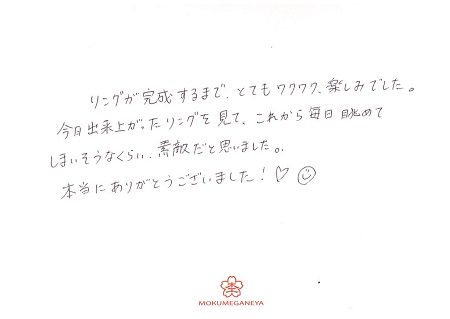 リングが完成するまで、とてもワクワク、楽しみでした。
今日出来上がったリングを見て、これから毎日眺めて
しまいそうなくらい、素敵だと思いました。
本当にありがとうございました！♡☺
MOKUMEGANEYA